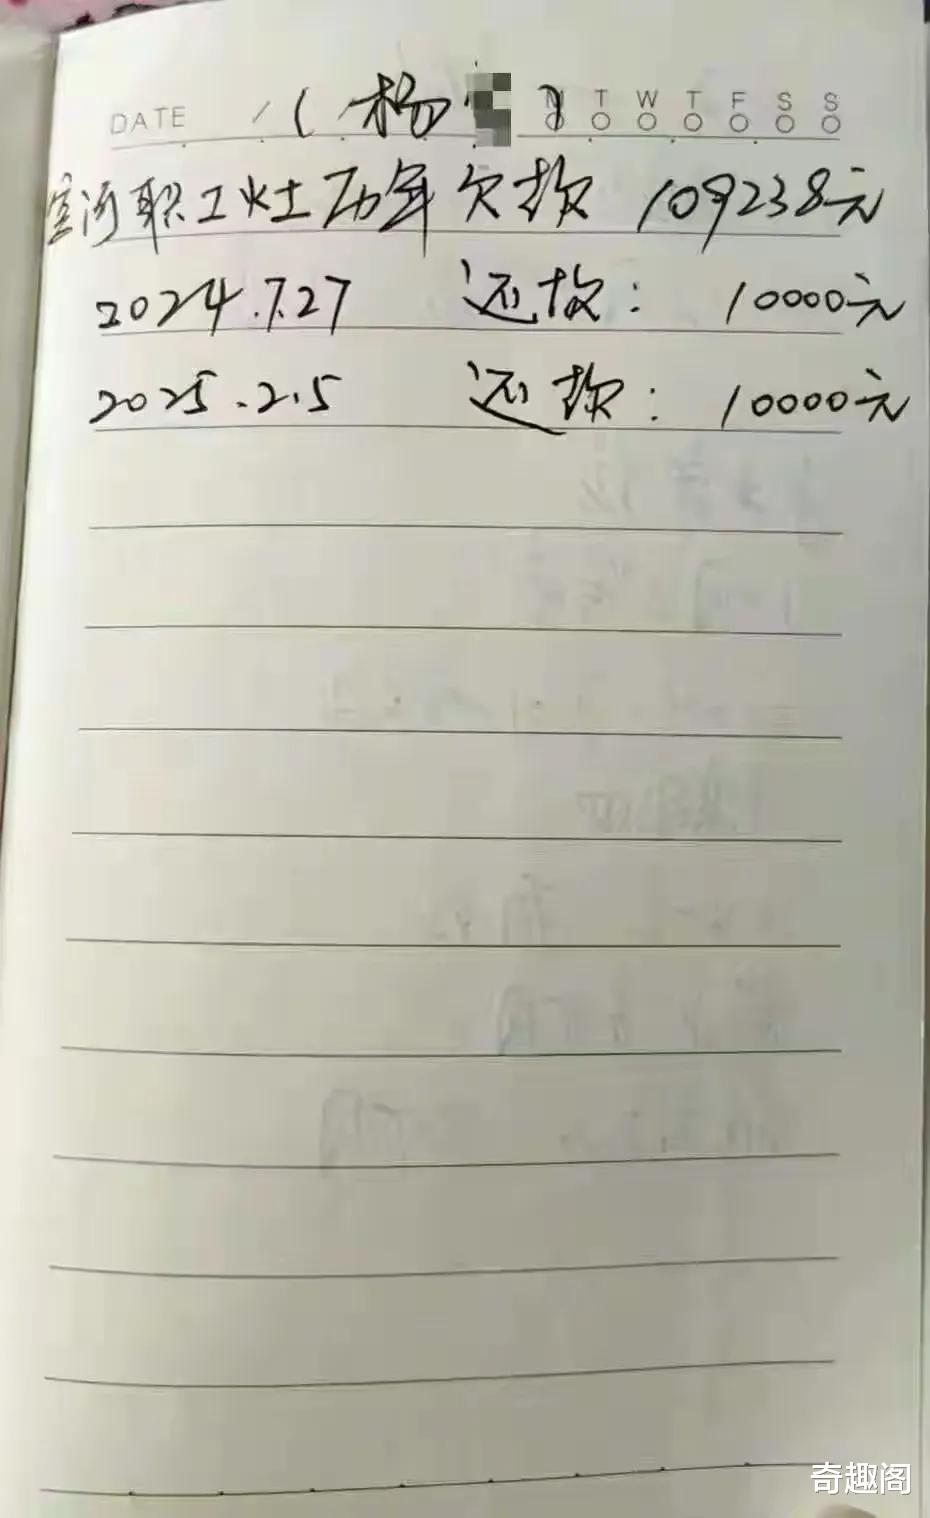 DATE / (杨 ) T W T F S S
室河职工灶历年欠款 109238元
2024.7.27 还款: 10000元
2025.2.5 还款: 10000元
奇趣阁